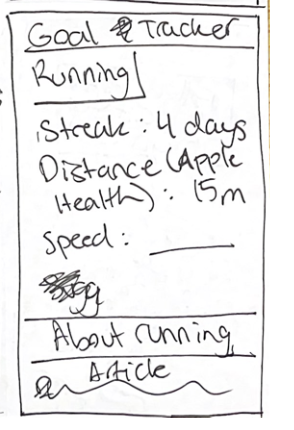 Goal Tracker
Running
Streak: 4 days
Distance (Apple
Health): 15m
Speed:
About running
Article